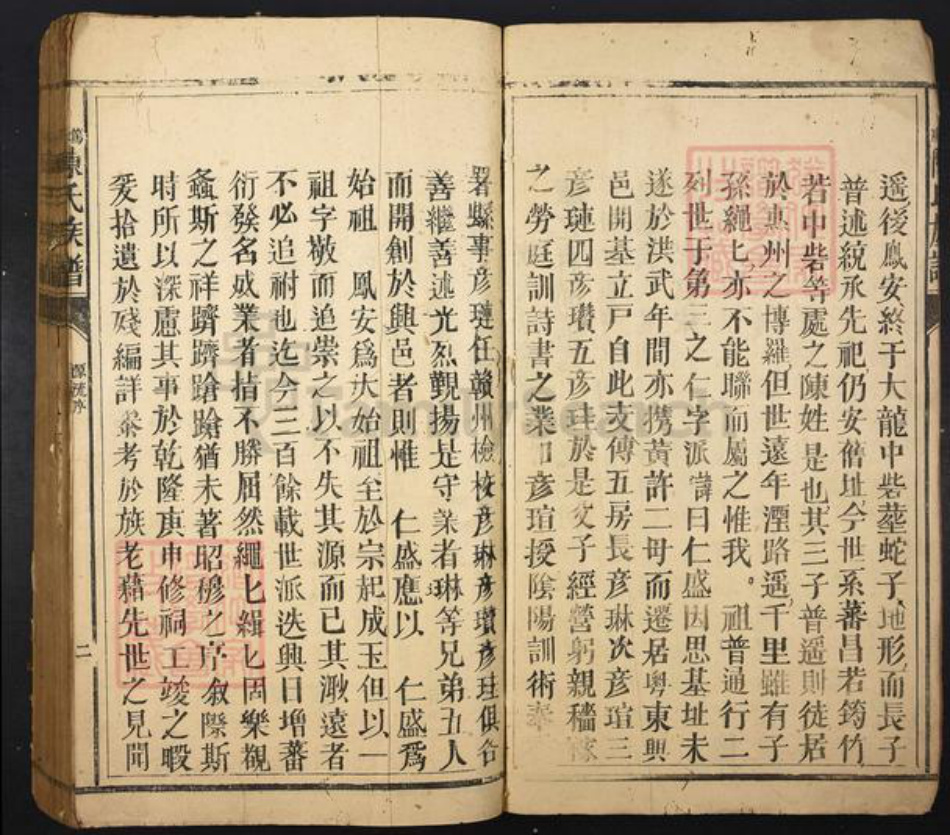 遥後鳳安終于大龍中砦塟蛇子地形而長子
普述統承先祀仍安舊址今世系蕃昌若筠竹
若中砦等處之陳姓是也其三子普遥則徒居
於惠州之博羅但世遠年湮路遥千里雖有子
孫繩匕亦不能聯而屬之惟我。祖普通行二
列世于第三之仁字派諱曰仁盛因思基址未
遂於洪武年間亦携黃許二母而遷居粤東興
邑開基立戸自此支傳五房長彦琳次彦瑄三
彦璉四彦瓚五彦珪於是父子經營躬親穡
之勞庭訓詩書之業 彦瑄授陰陽訓術奉
署縣事彦璉任贛州檢校彦琳彦瓚彦珪俱各
善繼善述光烈覲揚是守業者琳等兄弟五人
而開創於興邑者則惟 仁盛應以 仁盛爲
始祖 鳳安爲大始祖至於宗起成玉但以一
祖字敬而追崇之以不失其源而已其溯遠者
不必追祔也迄今三百餘載世派迭興日增蕃
衍發名成業者指不勝屈然繩匕緝匕固樂觀
螽斯之祥躋躋蹌蹌猶未著昭穆之序叙際斯
時所以深慮其事於乾隆庚申修祠工竣之暇
爰拾遺於殘編詳叅考於族老藉先世之見聞
陳氏族譜
源流序
二